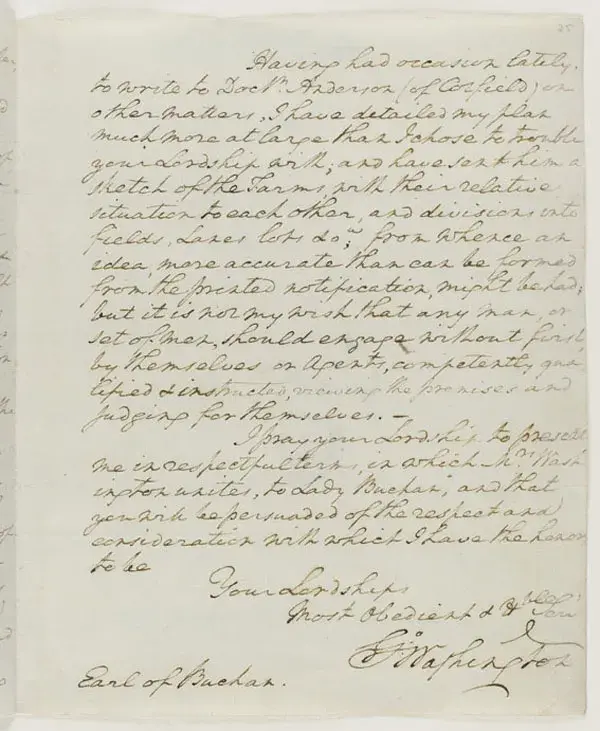 25
Having had occasion lately,
to write to Doctr. Anderson (of Cotfield) on
other matters, I have detailed my plan
much more at large than I chose to trouble
your Lordship with; and have sent him a
sketch of the Farms, with their relative
situation to each other, and divisions into
fields, Lanes lots &ca; from whence an
idea, more accurate than can be formed
from the printed notification, might be had;
but it is not my wish that any man, or
set of men, should engage without first,
by themselves or Agents, competently qua
lified & instructed, viewing the premises and
judging for themselves. —
I pray your Lordship to present
me in respectful terms, in which Mrs. Wash
ington unites, to Lady Buchan; and that
you will be persuaded of the respect and
consideration with which I have the honor
to be
Your Lordships
Most Obedient & Hble Ser
Go: Washington
Earl of Buchan.